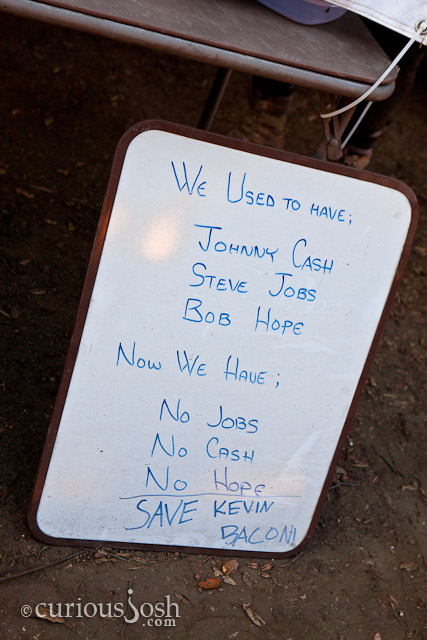 We Used to have;
Johnny Cash
Steve Jobs
Bob Hope
Now We Have;
No Jobs
No Cash
No Hope
SAVE KEVIN
BACON!
©curiousJosh
.com